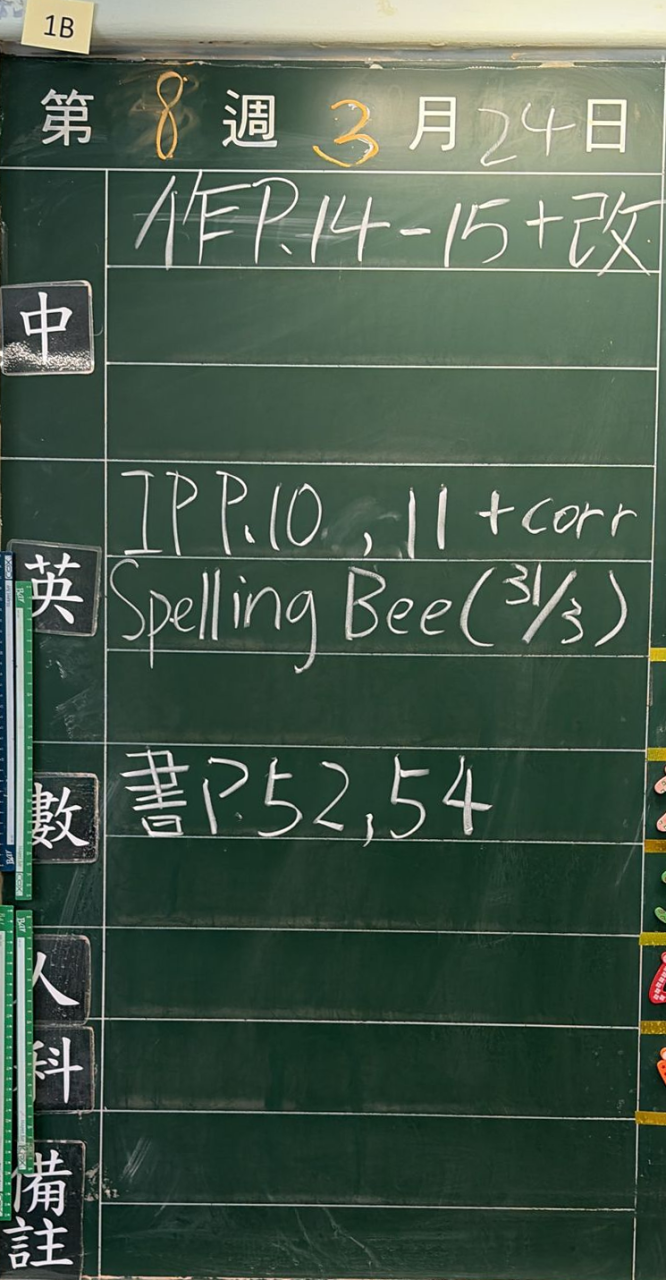 1B
第 8 週 3 月 24 日
作P.14-15+改
中
IP P.10, 11 +corr
英
Spelling Bee(31/3)
數
書P.52,54
人
科
備註